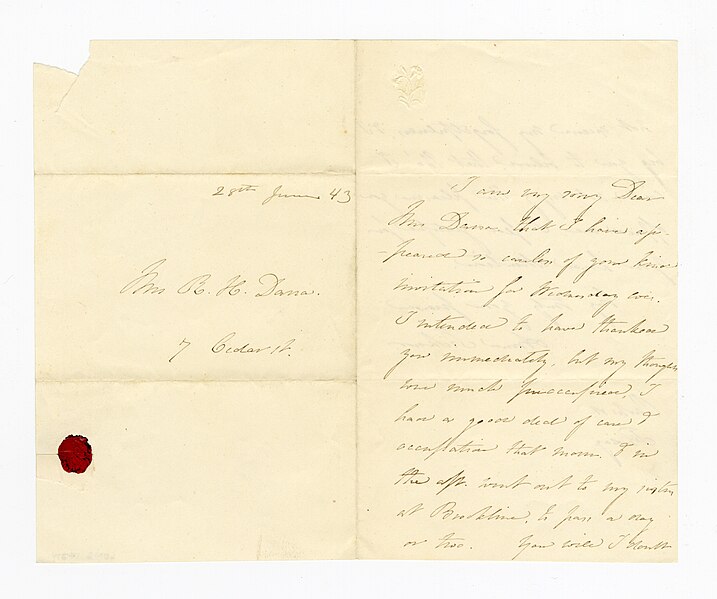 28th June 43
Mrs R. H. Dana.
7 Cedar St.
I am very sorry Dear
Mrs Dana that I have ap-
-peared so careless of your kind
invitation for Wednesday eve.
I intended to have thanked
you immediately, but my thoughts
were much preoccupied. I
have a good deal of care &
occupation that morn. & in
the aft. went out to my sisters
at Brookline, to pass a day
or two. You will I doubt